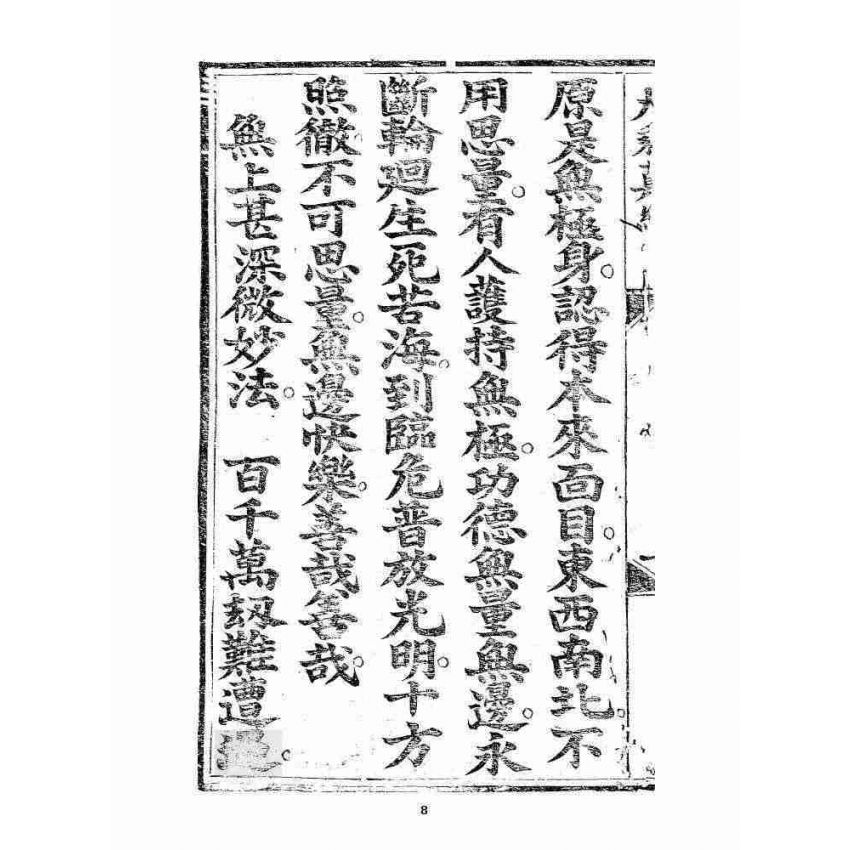 原是無極身。認得本來面目。東西南北。不
用思量。看人護持無極。功德無量無邊。永
斷輪廻生死苦海。到臨危普放光明。十方
照徹。不可思量。無邊快樂。善哉善哉
無上甚深微妙法。 百千萬刼難遭遇。
8